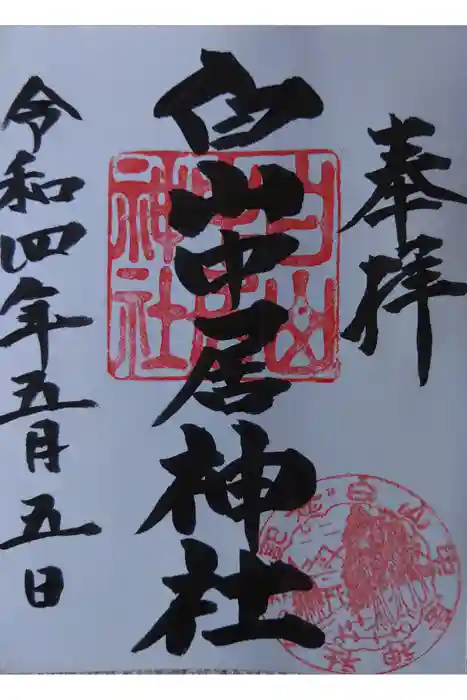 奉拝
白山中居神社
令和四年五月五日
白山
中居
神社